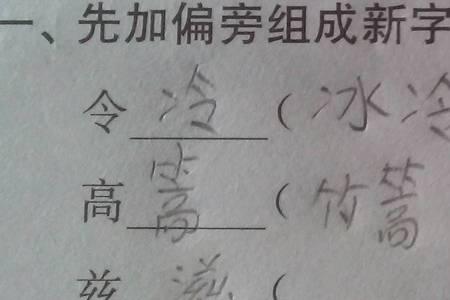 一、先加偏旁组成新字
令 冷 （冰冷
高 篙 （竹篙
兹 滋 （